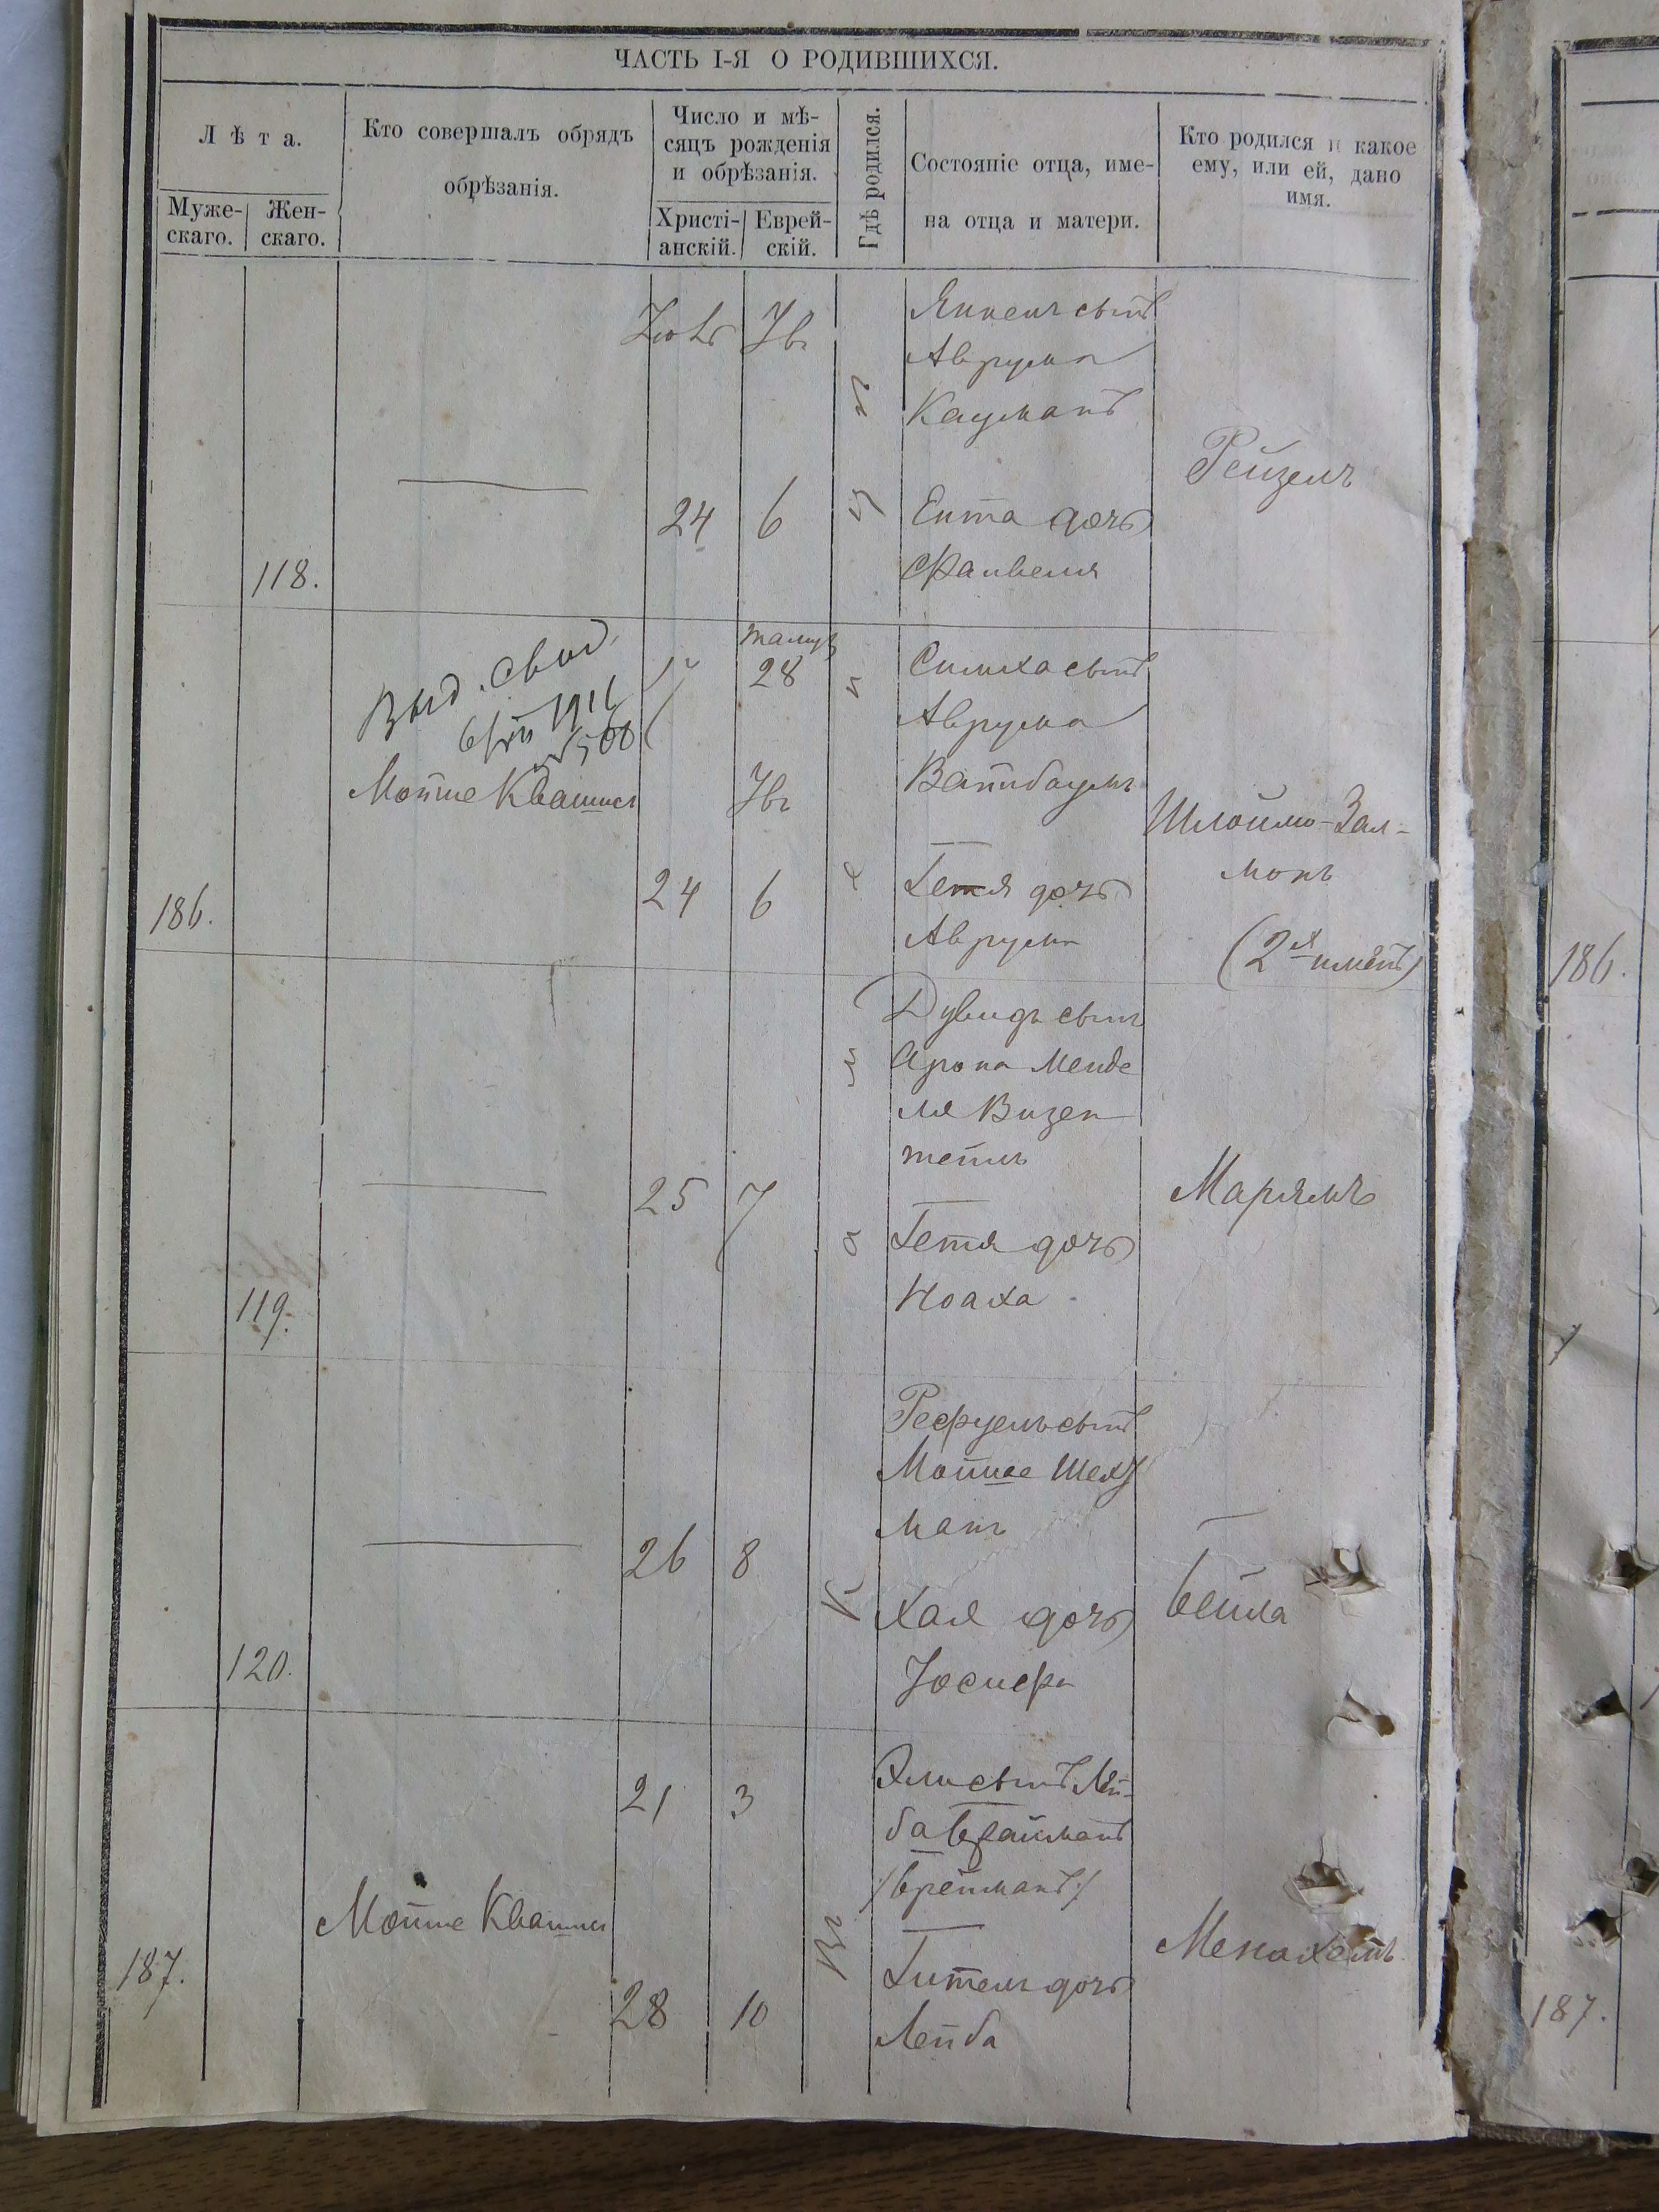 ЧАСТЬ I-Я О РОДИВШИХСЯ.
Лѣта.
Муже-
скаго.
Жен-
скаго.
Кто совершалъ обрядъ
обрѣзанія.
Число и мѣ-
сяцъ рожденія
и обрѣзанія.
Христі-
анскій.
Еврей-
скій.
Гдѣ родился.
Состояніе отца, име-
на отца и матери.
Кто родился и какое
ему, или ей, дано
имя.
118.
24
6
Янкель сынъ
Аврума
Кауманъ
Ента дочь
Файвеля
Рейзель
186.
Выд. свид.
1916
№ 500
Мотше Квашис
тамуз
28
24
6
Симха сынъ
Аврума
Вайнбаумъ
Гетя дочь
Аврума
Шлоймо-Зал-
монъ
(2хъ именъ)
119.
25
7
Дувидъ сынъ
Арона Менде
ля Визен
Гетя дочь
Ноаха
Марямъ
120.
26
8
Рефуель сынъ
Мойше Шех
манъ
Хая дочь
Юсифа
Бейла
187.
Мотше Квашис
21
3
28
10
сынъ Лей-
ба Брайманъ
/Брейманъ/
Гитель дочь
Лейба
Менахемъ
186.
187.